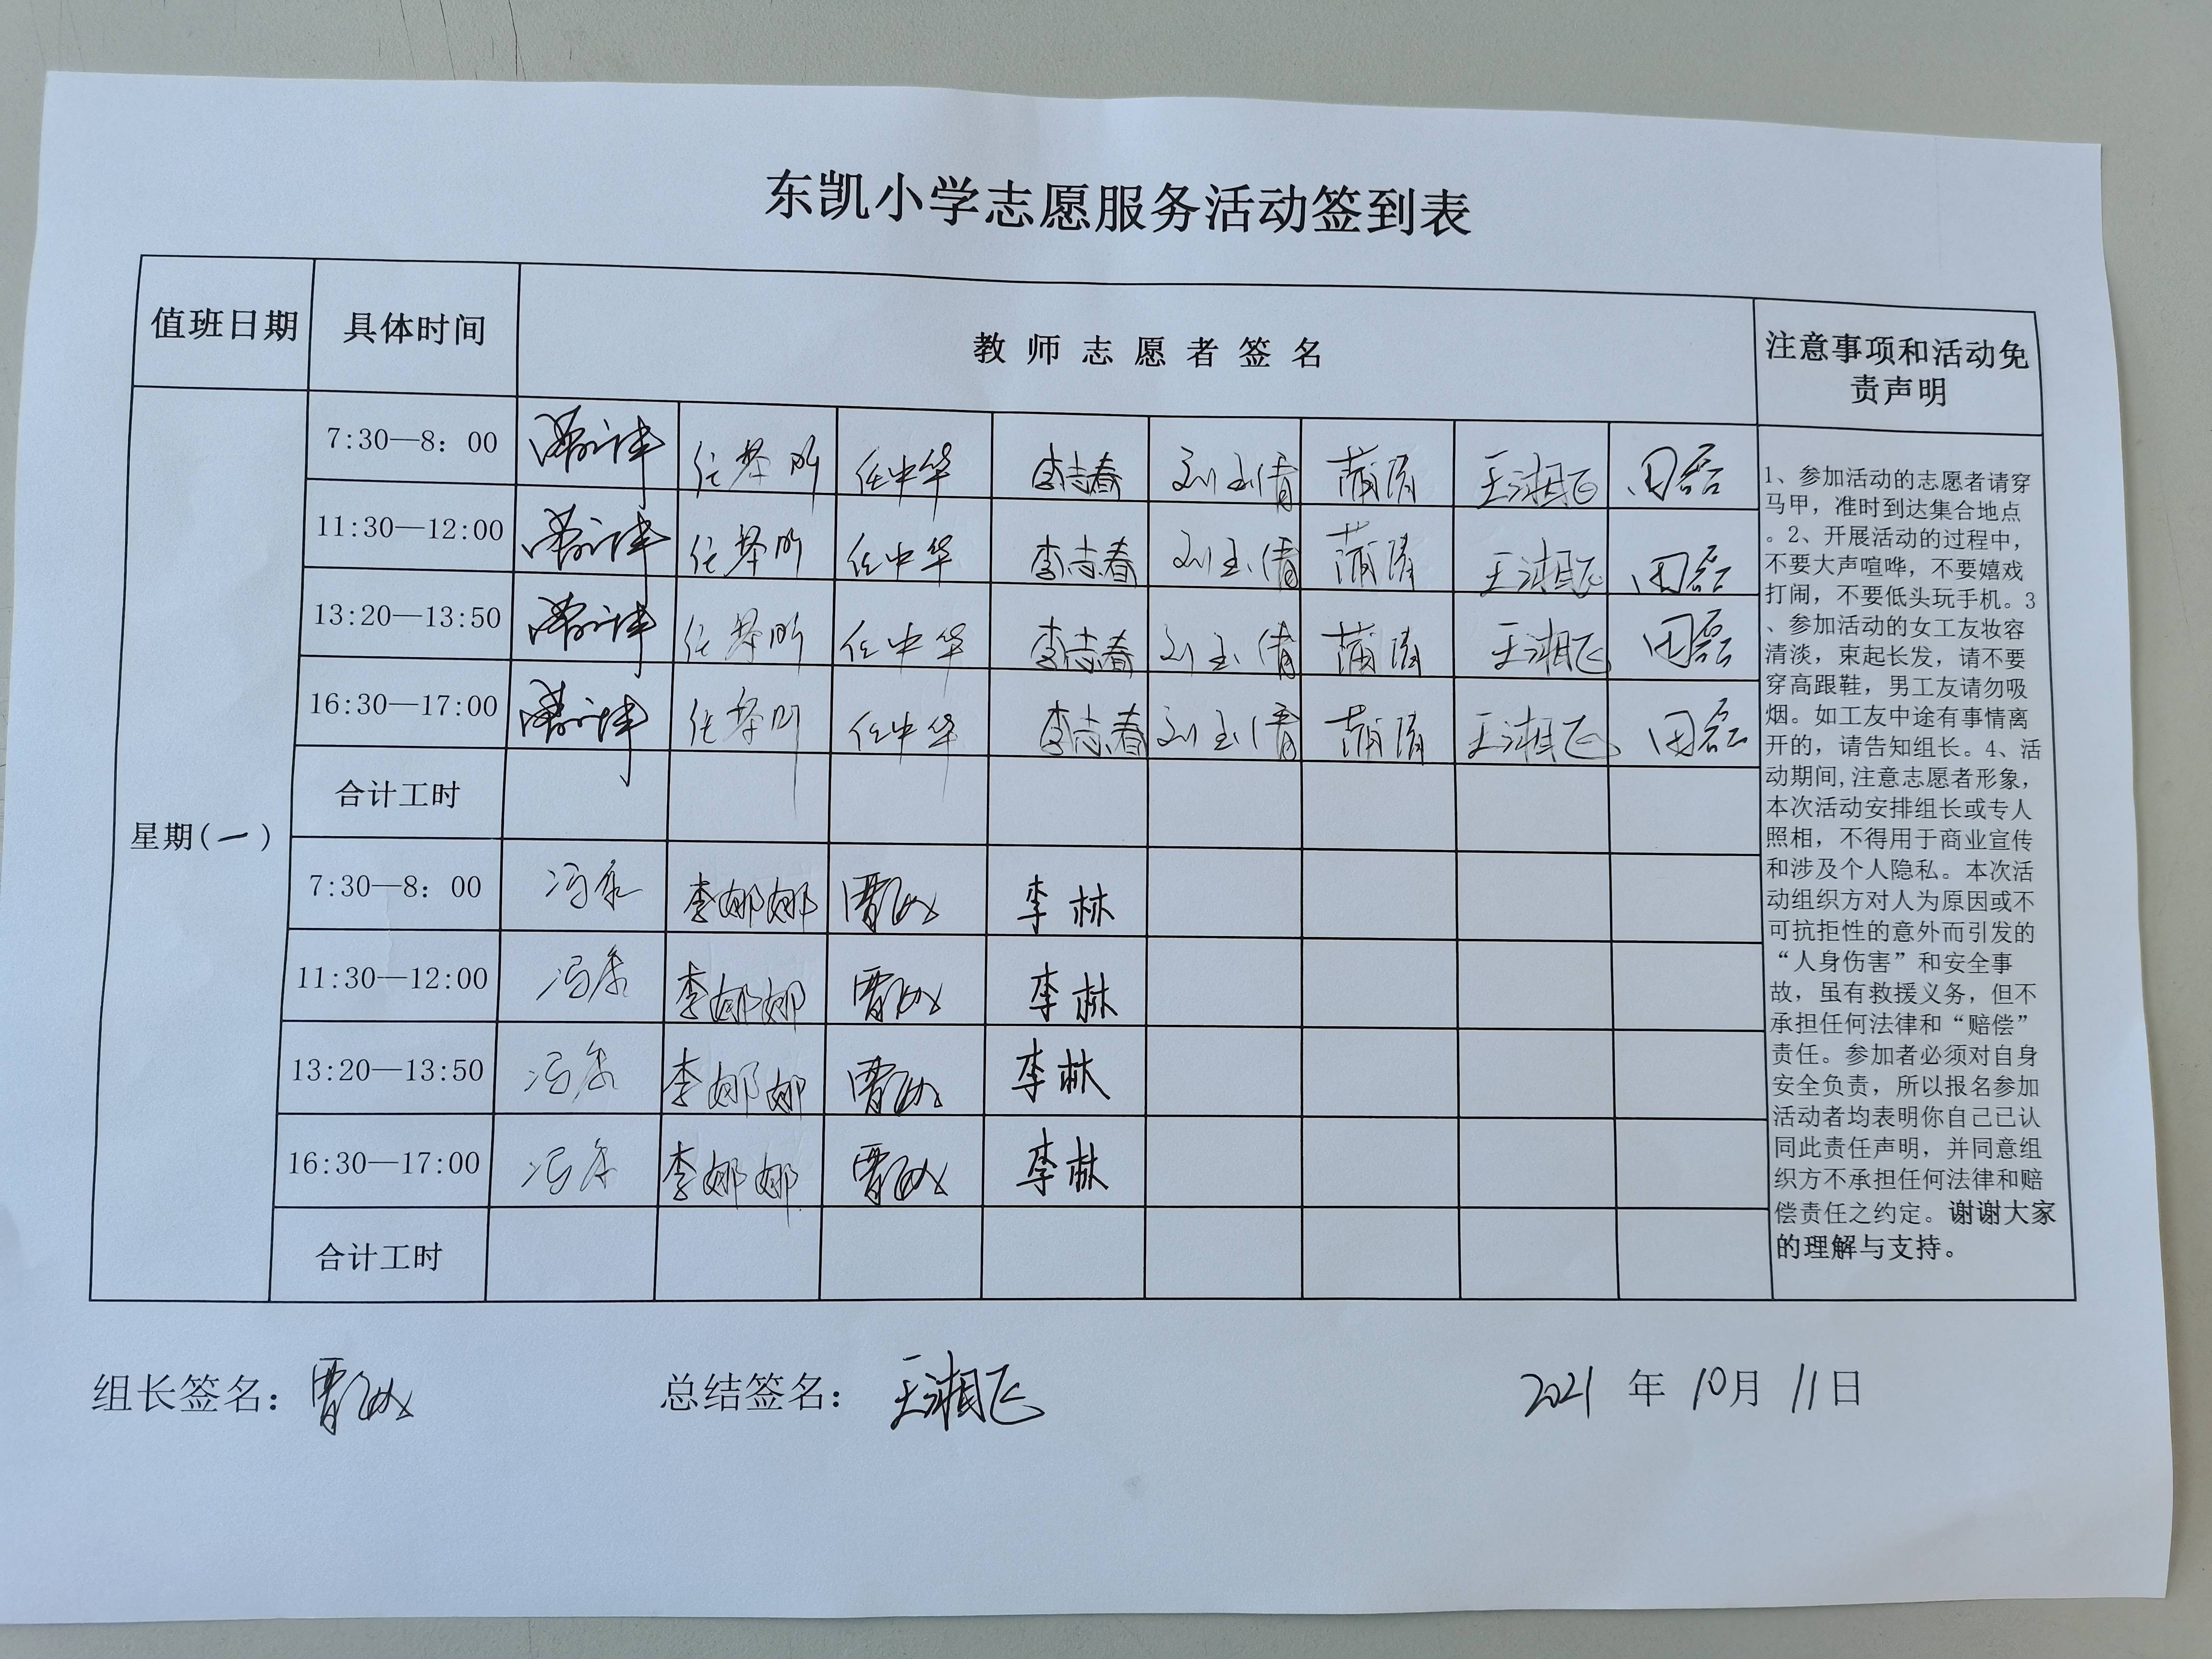 东凯小学志愿服务活动签到表
值班日期 具体时间 教师志愿者签名 注意事项和活动免
责声明
星期(一)
7:30—8：00 任中华 李志春 刘玉倩 蒲清 王湘飞 田磊
11:30—12:00 任中华 李志春 刘玉倩 蒲清 王湘飞 田磊
13:20—13:50 任中华 李志春 刘玉倩 蒲清 王湘飞 田磊
16:30—17:00 任中华 李志春 刘玉倩 蒲清 王湘飞 田磊
合计工时
7:30—8：00 李娜娜 李林
11:30—12:00 李娜娜 李林
13:20—13:50 李娜娜 李林
16:30—17:00 李娜娜 李林
合计工时
1、参加活动的志愿者请穿
马甲，准时到达集合地点
。2、开展活动的过程中，
不要大声喧哗，不要嬉戏
打闹，不要低头玩手机。3
、参加活动的女工友妆容
清淡，束起长发，请不要
穿高跟鞋，男工友请勿吸
烟。如工友中途有事情离
开的，请告知组长。4、活
动期间,注意志愿者形象，
本次活动安排组长或专人
照相，不得用于商业宣传
和涉及个人隐私。本次活
动组织方对人为原因或不
可抗拒性的意外而引发的
“人身伤害”和安全事
故，虽有救援义务，但不
承担任何法律和“赔偿”
责任。参加者必须对自身
安全负责，所以报名参加
活动者均表明你自己已认
同此责任声明，并同意组
织方不承担任何法律和赔
偿责任之约定。谢谢大家
的理解与支持。
组长签名： 总结签名：王湘飞 2021 年 10月 11日